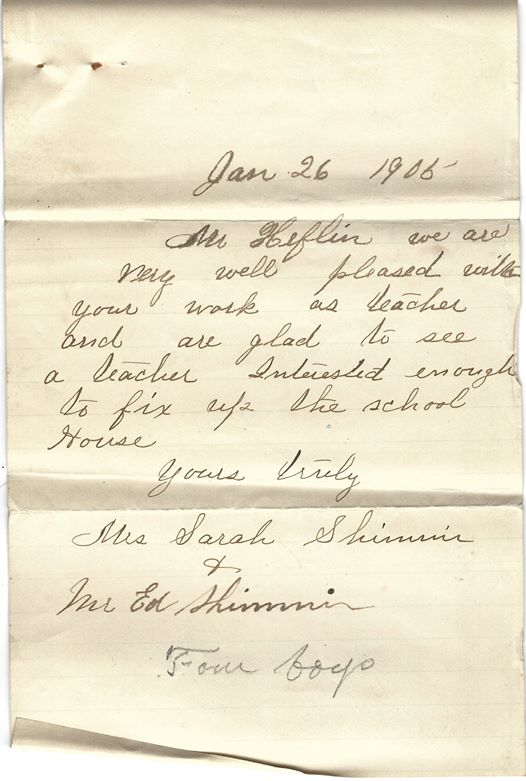 Jan 26 1905
Mr Heflin we are
very well pleased with
your work as teacher
and are glad to see
a teacher Interested enough
to fix up the school
House
Yours truly
Mrs Sarah Shimmin
&
Mr Ed Shimmin
Four boys